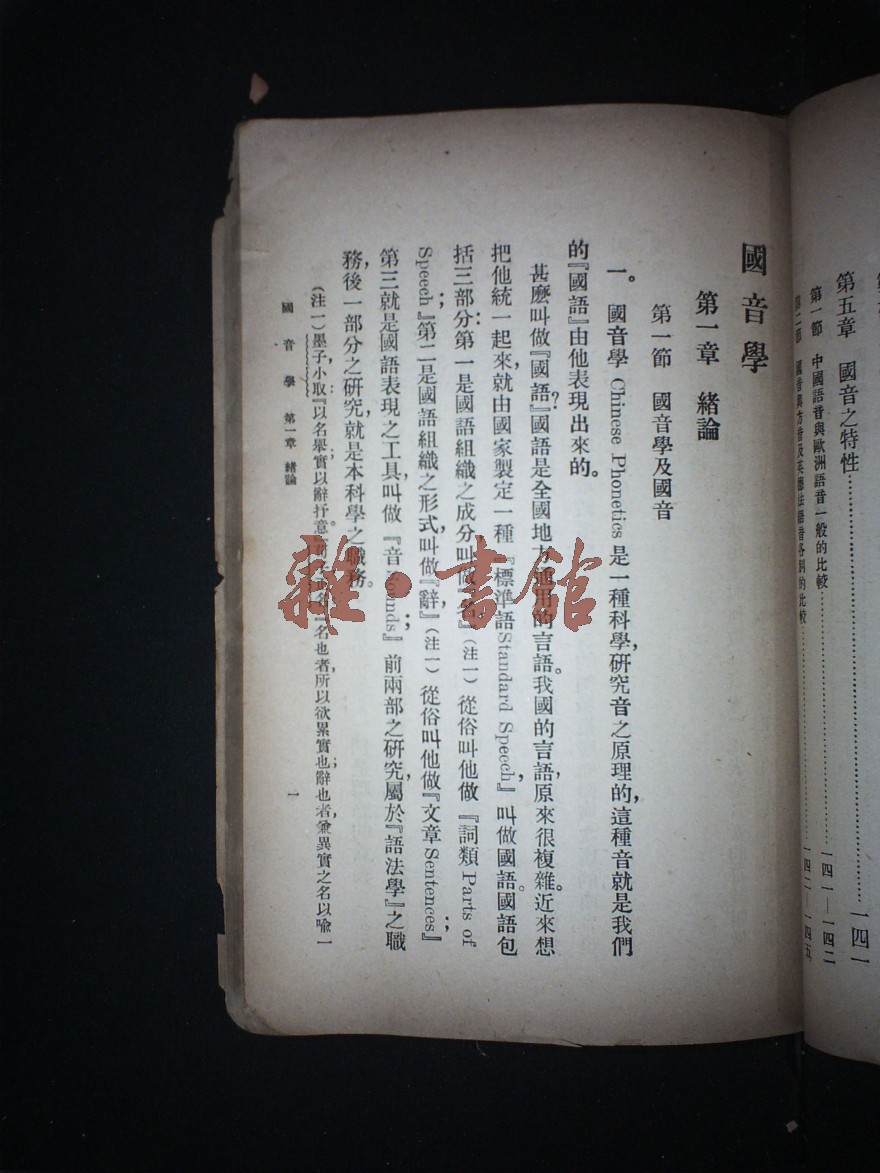 第五章　國音之特性……一四一
第一節　中國語音與歐洲語音一般的比較……一四一—一四二
國音與方音及英德法語音各別的比較……一四二—一四五
國音學
第一章　緒論
第一節　國音學及國音
一。國音學 Chinese Phonetics 是一種科學，研究音之原理的，這種音就是我們
的『國語』由他表現出來的。
甚麼叫做『國語』？國語是全國地方通用的言語。我國的言語，原來很複雜。近來想
把他統一起來，就由國家製定一種『標準語 Standard Speech』，叫做國語。國語包
括三部分：第一是國語組織之成分，叫做『名』（注一）從俗叫他做『詞類 Parts of
Speech』；第二是國語組織之形式，叫做『辭』（注一）從俗叫他做『文章 Sentences』；
第三就是國語表現之工具，叫做『音 Sounds』；前兩部之研究，屬於『語法學』之職
務，後一部分之研究，就是本科學之職務。
（注一）墨子小取：『以名舉實；以辭抒意。』『名也者，所以欲累實也；辭也者，兼異實之名以喻一
國音學　第一章　緒論
一
雜·書館